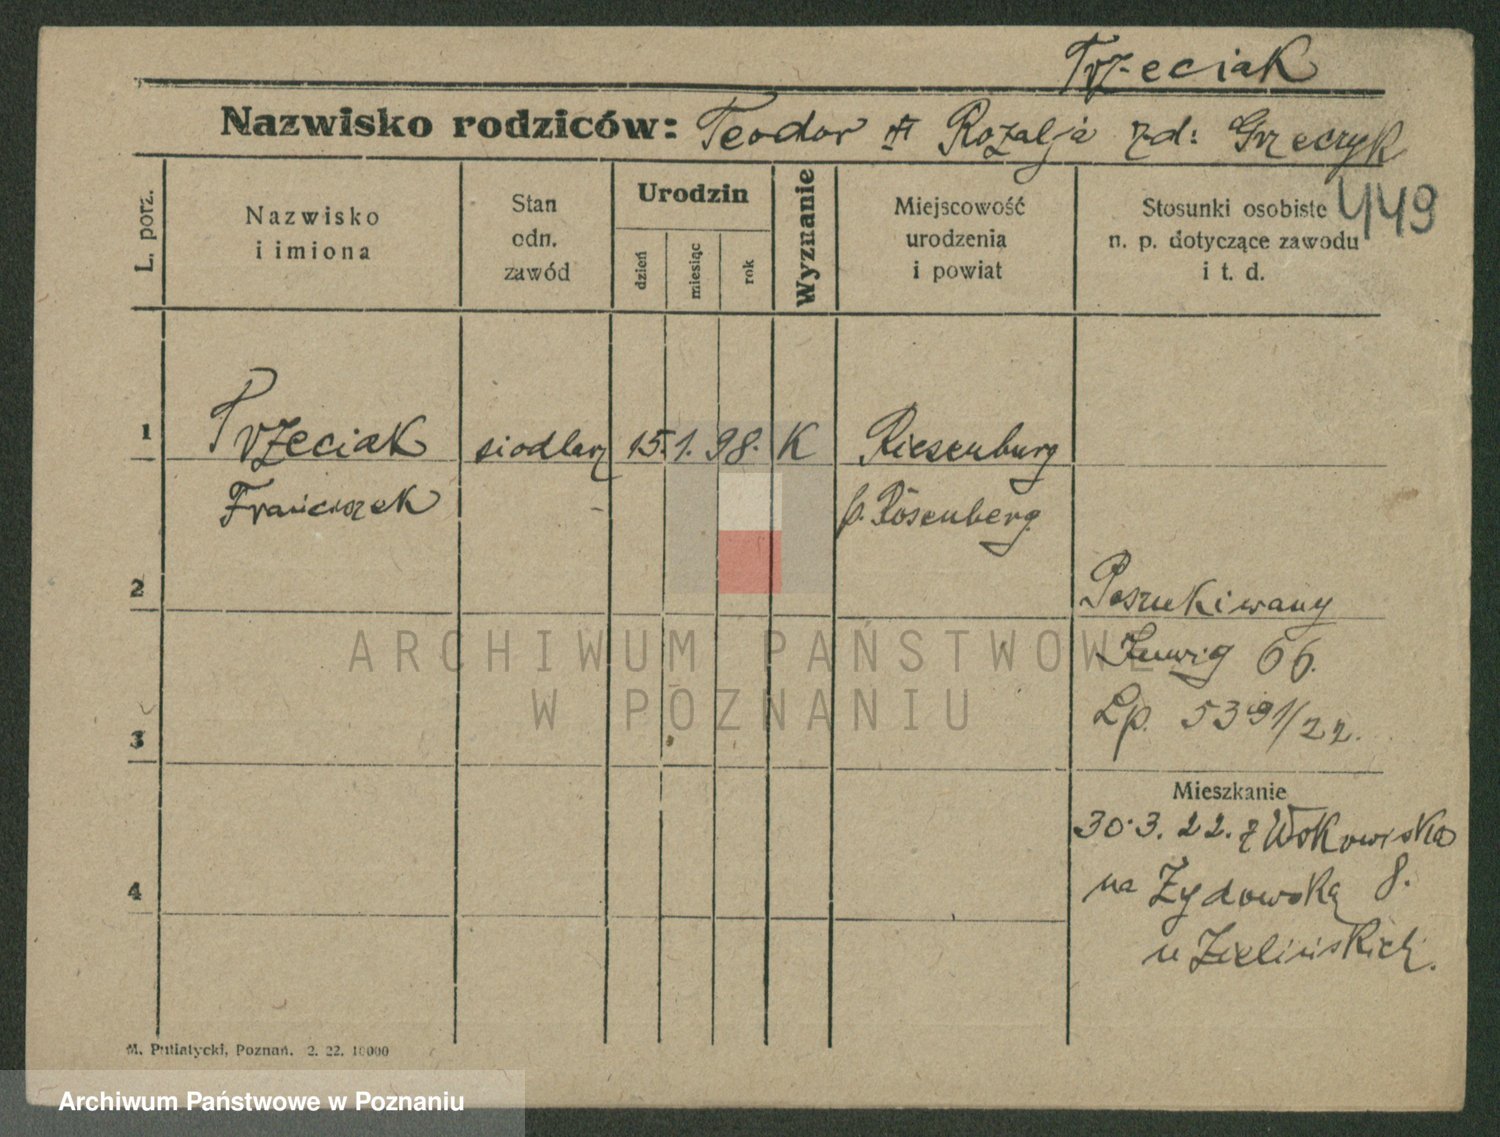 Trzeciak
Nazwisko rodziców: Teodor Rozalja zd: Grzeczyk
449
L. porz.
Nazwisko
i imiona
Stan
odn.
zawód
Urodzin
dzień
miesiąc
rok
Wyznanie
Miejscowość
urodzenia
i powiat
Stosunki osobiste
n. p. dotyczące zawodu
i t. d.
1 Trzeciak siodlarz 15. 1. 98. K Riesenburg
Franciszek p. Rosenberg
2
Poszukiwany
66.
Lp. 5391/22.
3
Mieszkanie
30.3.22. z
4
na Żydowską 8.
u Zielińskich.
M. Putiatycki, Poznań. 2. 22. 10000
ARCHIWUM PAŃSTWOWE
W POZNANIU
Archiwum Państwowe w Poznaniu